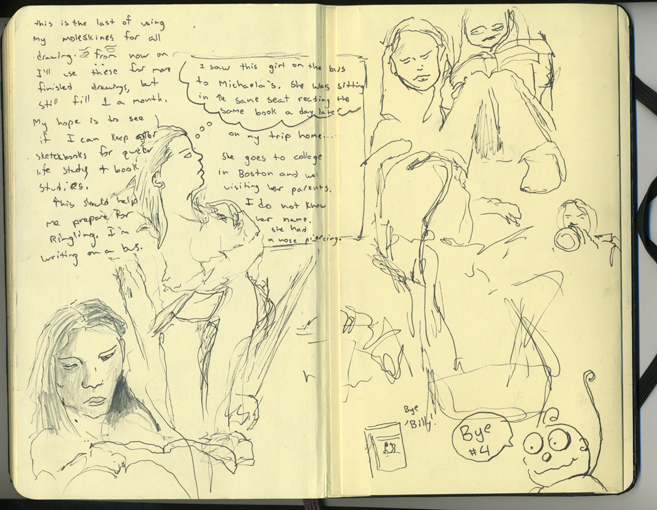 this is the last of using
my moleskines for all
drawing. from now on
I'll use these for more
finished drawings, but
still fill 1 a month.
My hope is to see
if I can keep
sketchbooks for
life study + book
studies.
this should help
me prepare for
Ringling. I'm
writing on a bus.
I saw this girl on the bus
to Michaela's. She was sitting
in the same seat reading the
same book a day later
on my trip home...
She goes to college
in Boston and
visiting her parents.
I do not know
her name.
she had
a nose piercing.
Bye
'Billy'!
Bye
#4